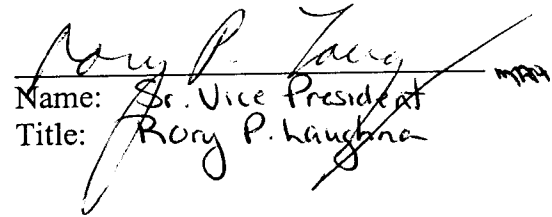 Rory P.
Name: Sr. Vice President
Title: Rory P. Laughna